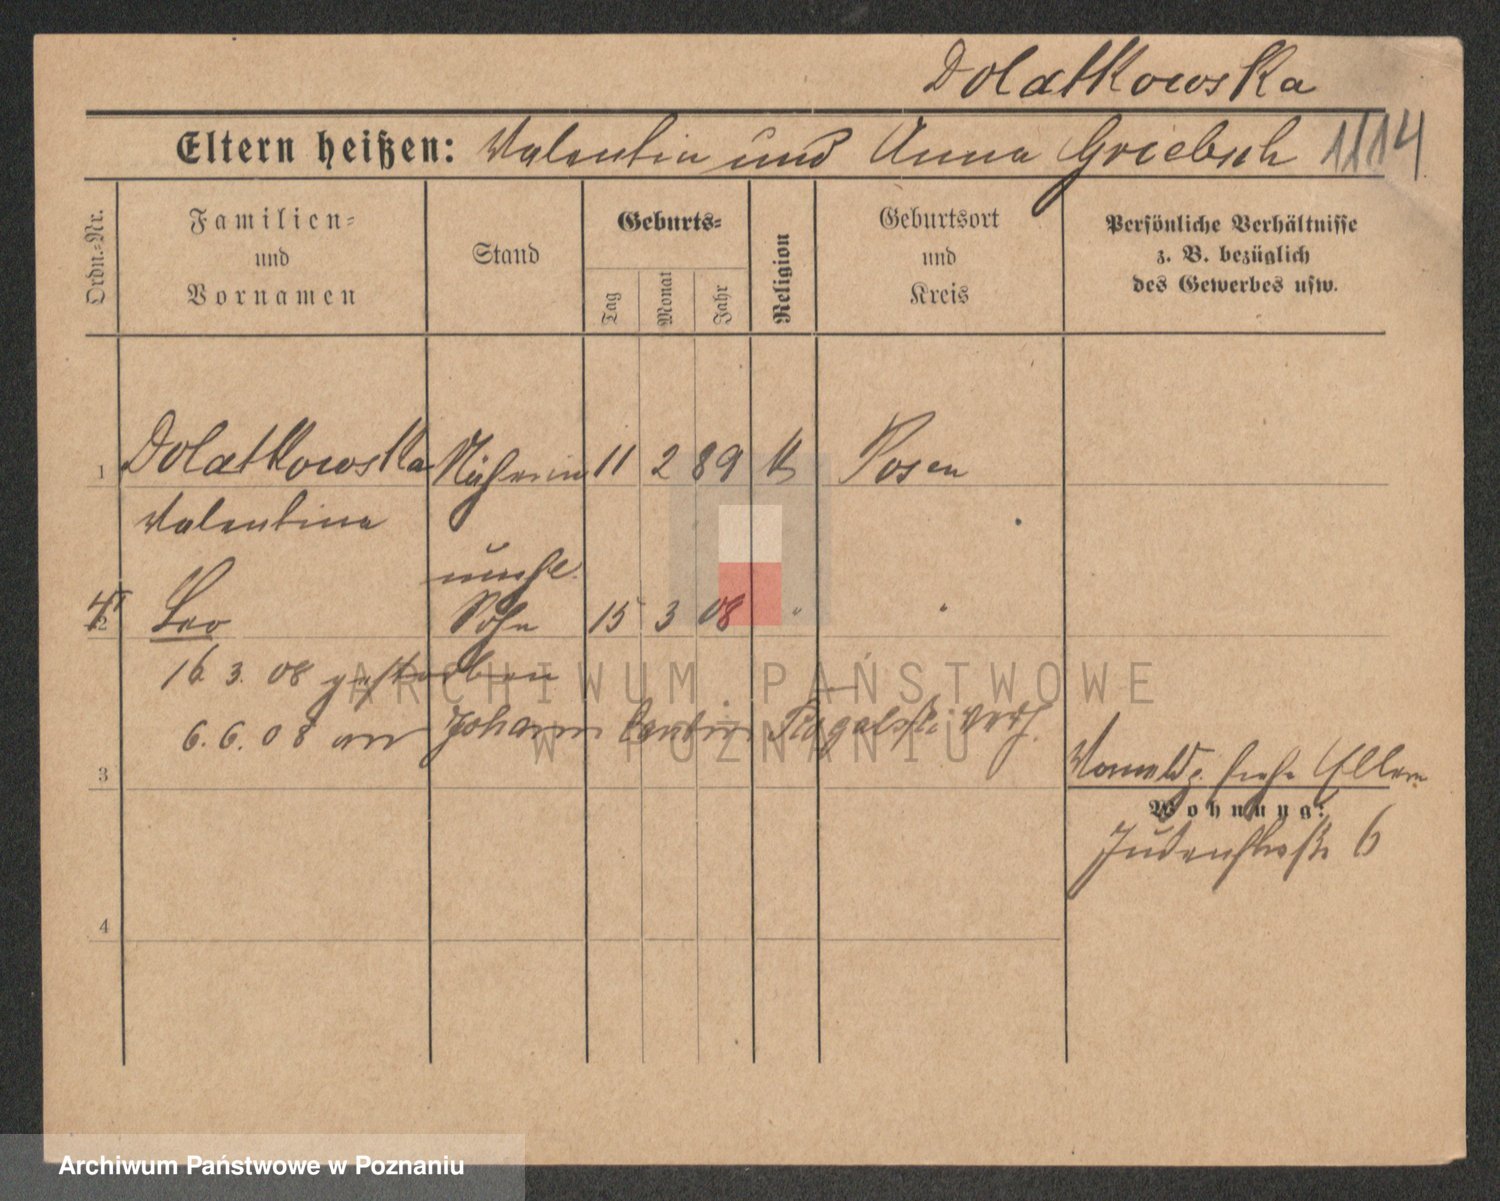 Dolatkowska
Eltern heißen: Valentin und Anna Griebsch 1114
Ordn.-Nr.
Familien-
und
Vornamen
Stand
Geburts-
Tag
Monat
Jahr
Religion
Geburtsort
und
Kreis
Persönliche Verhältnisse
z. B. bezüglich
des Gewerbes usw.
1 Dolatkowska Näherin 11 2 89 K Posen
Valentina
unehl.
2 Leo Sohn 15 3 08 " "
16. 3. 08 gestorben
6. 6. 08 an Johann verh.
3
siehe Eltern
Wohnung:
Judenstraße 6
4
ARCHIWUM PAŃSTWOWE
W POZNANIU
Archiwum Państwowe w Poznaniu